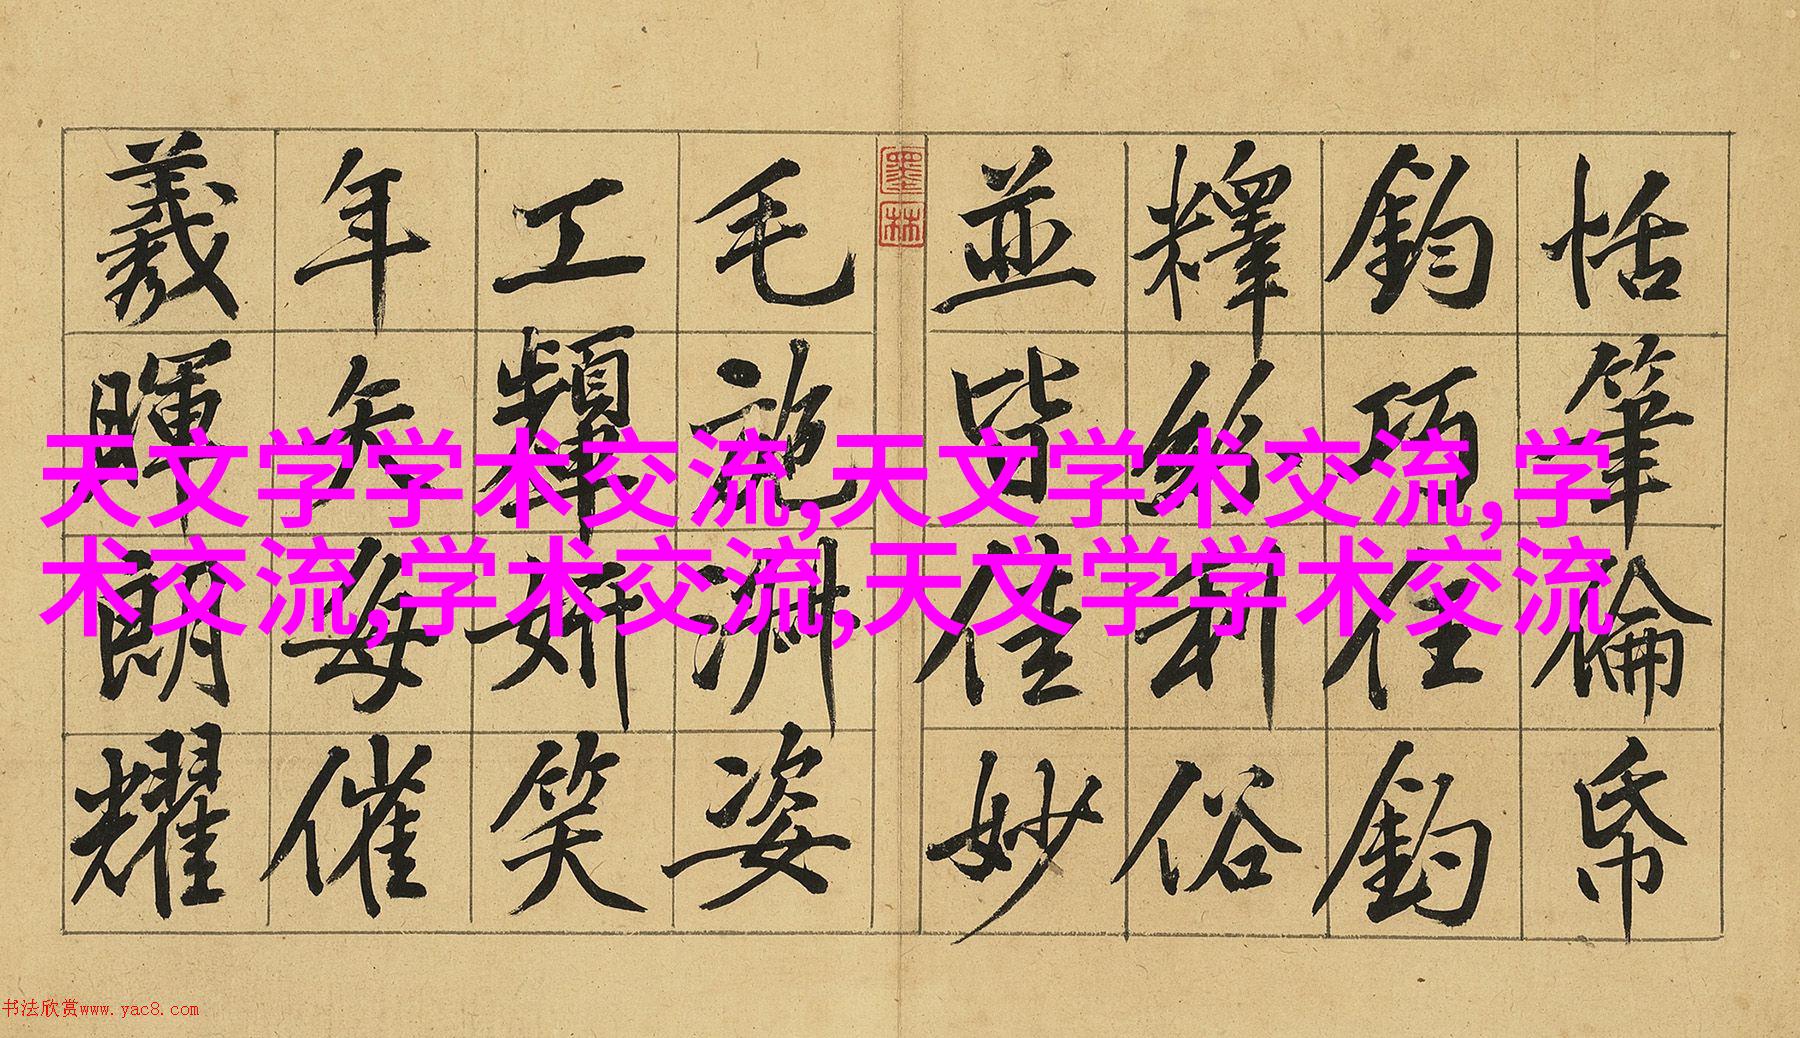 恬筆倫帋
鈞巧任釣
釋紛利俗
並皆佳妙
墨林
毛施淑姿
工顰妍笑
年矢每催
羲暉朗耀
天文学学术交流,天文学术交流,学
术交流,学术交流,天文学学术交流
书法欣赏www.yac8.com